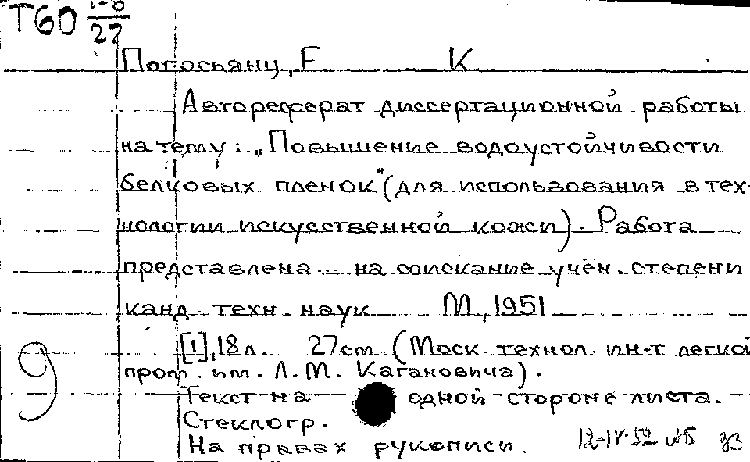 Т60 1-8/22
Погосьянц, Е К
Автореферат диссертационной работы
на тему: „Повышение водоустойчивости
белковых пленок" (для использования в тех-
нологии искусственной кожи). Работа
представлена на соискание учен. степени
канд. техн. наук М, 1951
[1], 18 л. 27 cm (Моск. технол. ин-т легкой
пром. им. Л. М. Кагановича).
Текст на одной стороне листа.
Стеклогр.
На правах рукописи. 12-IV-52 №5
9